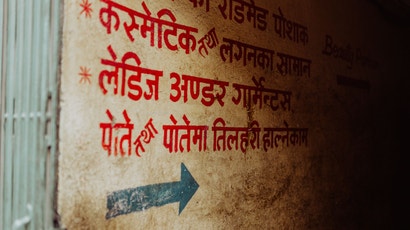 को रेडिमेड पोशाक
* कस्मेटिक तथा लगनका सामान
* लेडिज अण्डर गार्मेन्टस्
पोते तथा पोतेमा तिलहरी हाल्नेकाम
Beauty